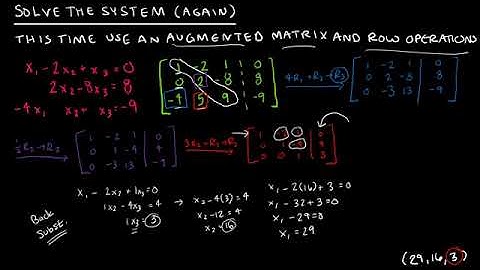 SOLVE THE SYSTEM (AGAIN)
THIS TIME USE AN AUGMENTED MATRIX AND ROW OPERATIONS
x₁ -2x₂ + x₃ = 0
2x₂ -8x₃ = 8
-4x₁ x₂ + x₃ = -9
1 -2 1 | 0
0 2 -8 | 8
-4 5 9 | -9
4R₁ + R₃ → R₃
1 -2 1 | 0
0 2 -8 | 8
0 -3 13 | -9
½R₂ → R₂
1 -2 1 | 0
0 1 -4 | 4
0 -3 13 | -9
0 0 1 | 3
Back
Subst.
x₁ - 2x₂ + 1x₃ = 0
1x₂ - 4x₃ = 4
1x₃ = 3
→ x₂ - 4(3) = 4
x₂ - 12 = 4
x₂ = 16
x₁ - 2(16) + 3 = 0
x₁ - 32 + 3 = 0
x₁ - 29 = 0
x₁ = 29
(29, 16, 3)